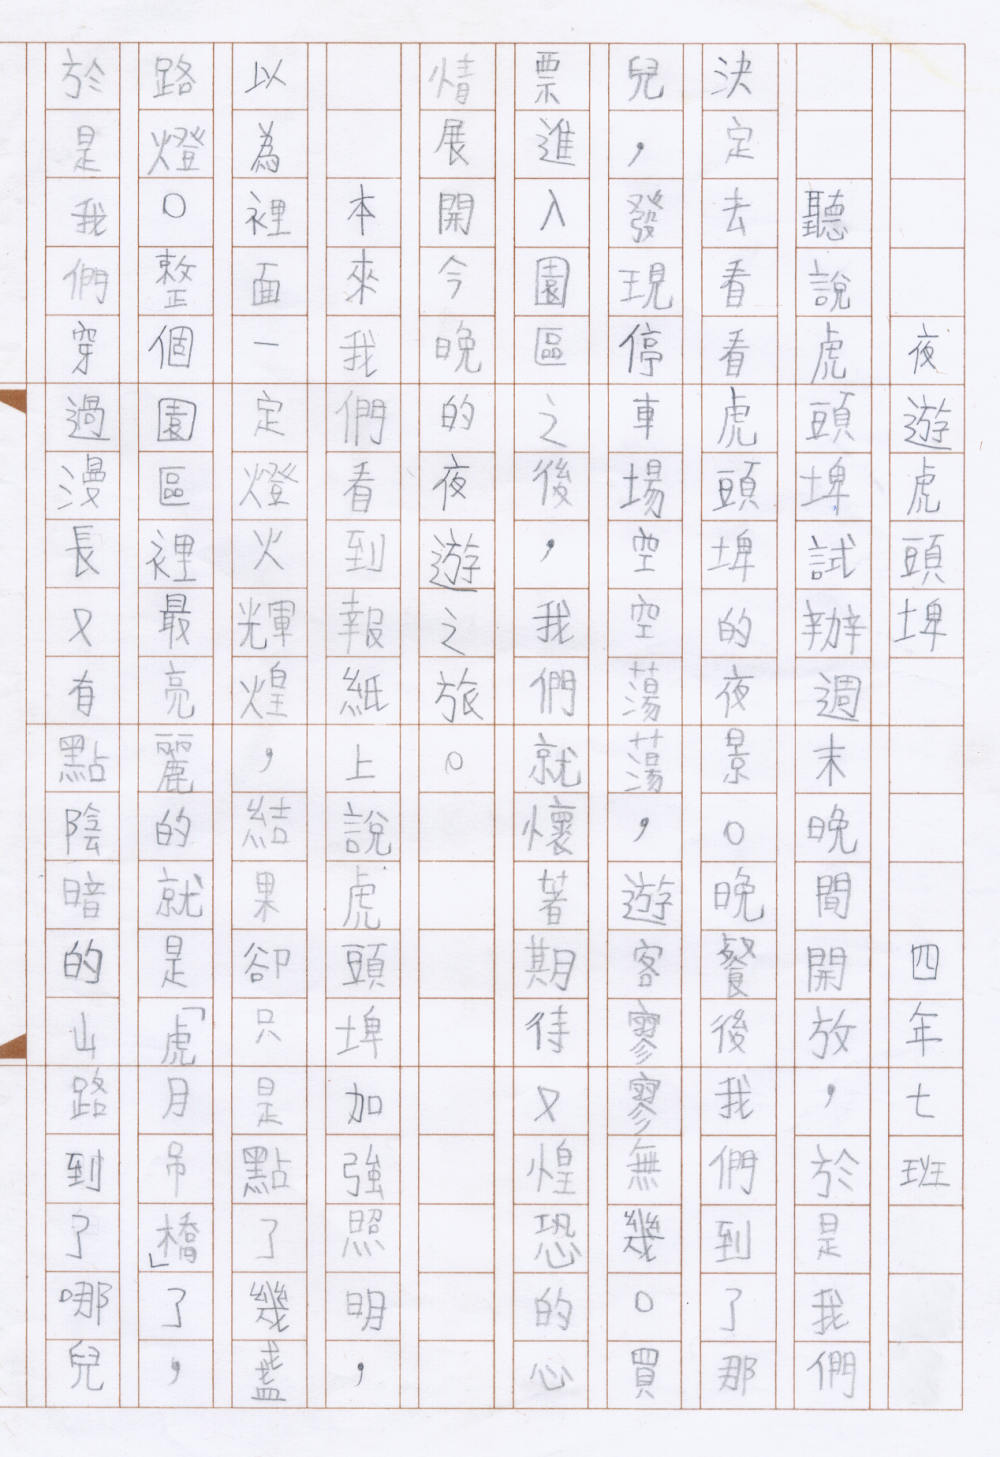 夜遊虎頭埤 四年七班
聽說虎頭埤試辦週末晚間開放，於是我們
決定去看看虎頭埤的夜景。晚餐後我們到了那
兒，發現停車場空空蕩蕩，遊客寥寥無幾。買
票進入園區之後，我們就懷著期待又惶恐的心
情展開今晚的夜遊之旅。
本來我們看到報紙上說虎頭埤加強照明，
以為裡面一定燈火輝煌，結果卻只是點了幾盞
路燈。整個園區裡最亮麗的就是「虎月吊橋」了，
於是我們穿過漫長又有點陰暗的山路到了哪兒